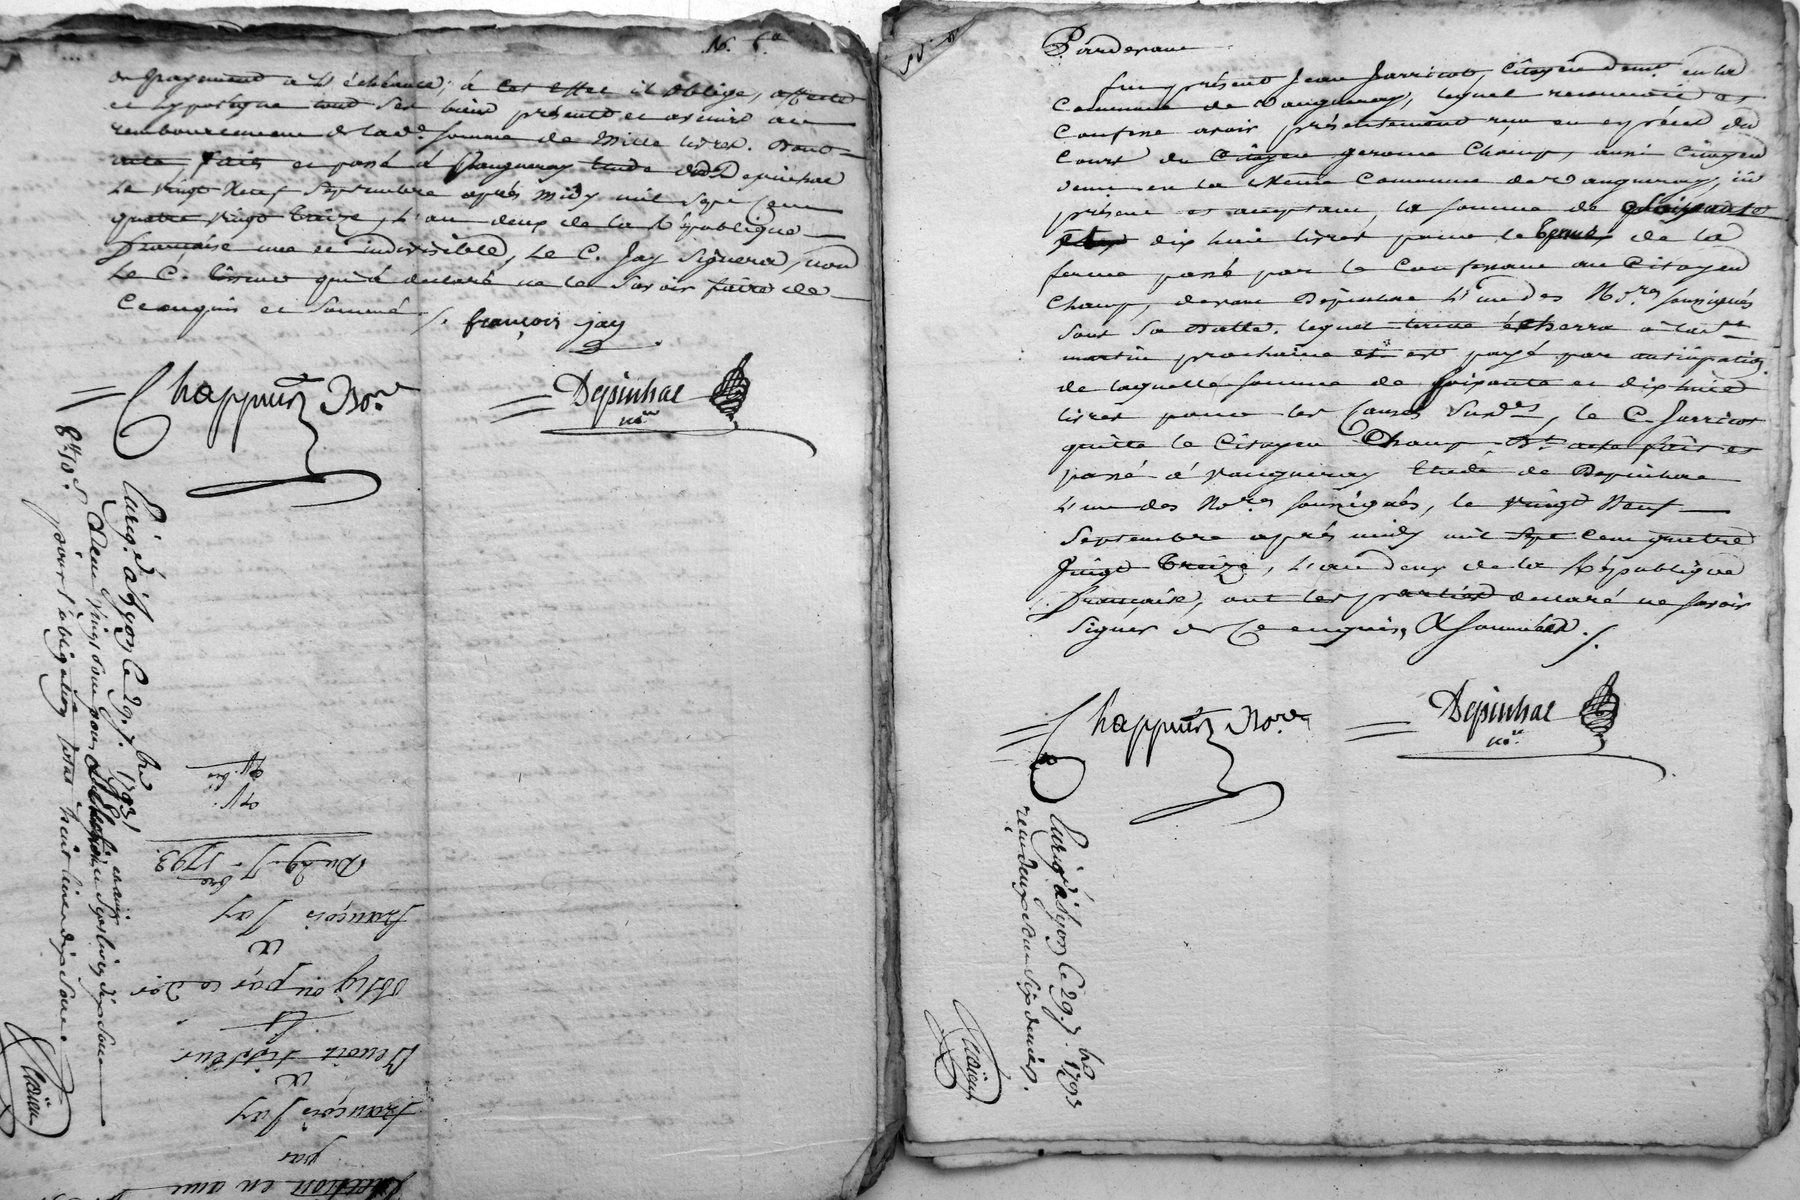 de payement a l'échéance; à cet effet il oblige, affecte
et hypothèque tout ses biens présents et avenirs au
remboursement de lad.e somme de mille livres. Dont
acte, fait et passé à Vaugneray Etude dud. Depinhac
le vingt Neuf Septembre après midy mil Sept Cent
quatre vingt treize, l'an deux de la République
française une et indivisible, le C. Jay Signera, non
le C. qui a declaré ne le Savoir faire de
Ce enquis et Sommé ./.
françois jay
Chappuis No.re
Depinhac
no.re
Enrig.é à Lyon, le 29. 7.bre 1793.
pour l'obligation huit livres dix Sous
Du 29. 7.bre 1793.
françois Jay
a
Benoit tisseur
a
françois Jay
par
en ane
Pardevant
fut présent Jean Jarricot, Citoyen dem.t en la
Commune de Vaugneray, lequel reconnoit et
Confesse avoir présentement reçu en espèces du
Cours du Citoyen gerome Champ, aussi Citoyen
dem.t en la même Commune de Vaugneray, ici
présent et acceptant, la somme de soixante
dix huit livres pour le terme de la
ferme passé par le Confessant au Citoyen
Champ, devant Depinhac l'un des No.res soussignés
sous Sa Datte. lequel terme écherra à la S.t
martin prochaine et est payé par anticipation.
de laquelle somme de soixante et dix huit
livres pour les Causes Susd.es, le C. Jarricot
quitte le Citoyen Champ D.t acte fait et
passé à Vaugneray Etude de Depinhac
l'un des No.res soussignés, le vingt Neuf
Septembre après midy mil Sept Cent quatre
Vingt treize, l'an deux de la République
française, ont les parties declaré ne savoir
Signer de Ce enquis, & Sommées ./.
Chappuis No.re
Depinhac
no.re
Enrig.é à Lyon, le 29. 7.bre 1793
reçu deux Six deniers.